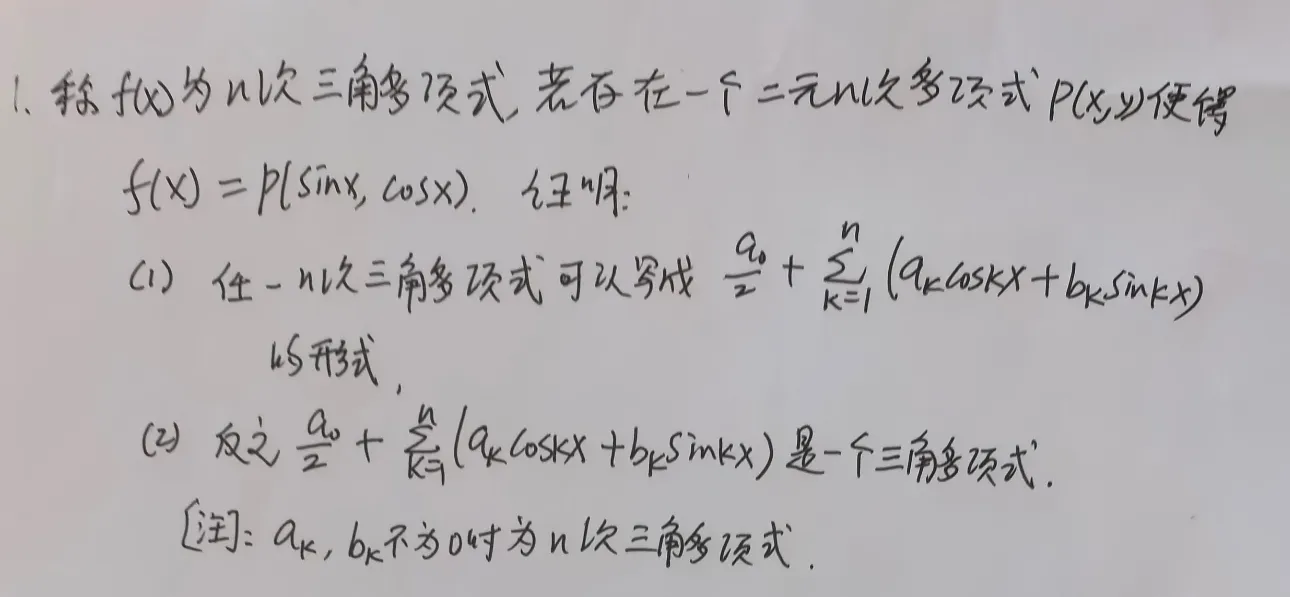 1. 称 f(x) 为 n 次三角多项式, 若存在一个二元 n 次多项式 P(x,y) 使得
f(x) = P(sinx, cosx). 证明:
(1) 任一 n 次三角多项式可以写成 \frac{a_0}{2} + \sum_{k=1}^{n} (a_k cos kx + b_k sin kx)
的形式,
(2) 反之 \frac{a_0}{2} + \sum_{k=1}^{n} (a_k cos kx + b_k sin kx) 是一个三角多项式.
[注]: a_k, b_k 不为0时为 n 次三角多项式.